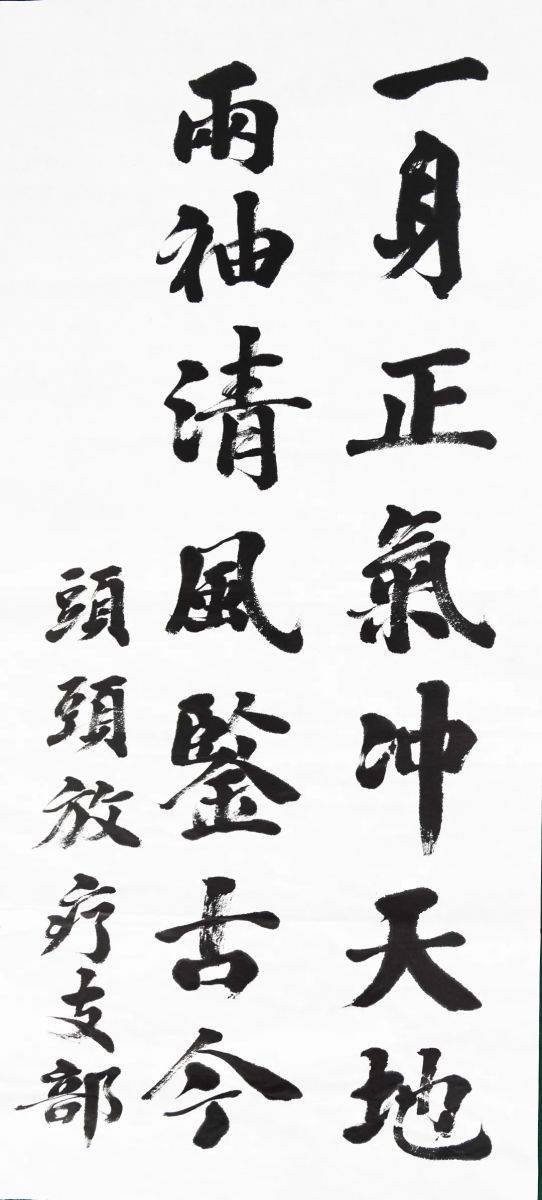 一身正氣冲天地
兩袖清風鋻古今
頭頸放疗支部